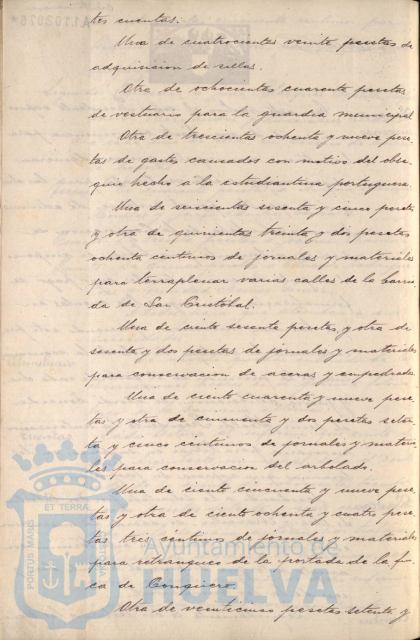 tes cuentas:
Una de cuatrocientas veinte pesetas de
adquisicion de sillas.
Otra de ochocientas cuarenta pesetas
de vestuario para la guardia municipal
Otra de trescientas ochenta y nueve pese
tas de gastos causados con motivo del obse
quio hecho á la estudiantina portuguesa.
Una de seiscientas sesenta y cinco peseta
y otra de quinientas treinta y dos pesetas
ochenta centimos de jornales y materiales
para terraplenar varias calles de la barria
da de San Cristóbal.
Una de ciento sesenta pesetas, y otra de
sesenta y dos pesetas de jornales y materiales
para conservacion de aceras y empedrado.
Una de ciento cuarenta y nueve pese
tas y otra de cincuenta y dos pesetas seten
ta y cinco centimos de jornales y materia
les para conservacion del arbolado.
Una de ciento cincuenta y nueve pese
tas y otra de ciento ochenta y cuatro pese
tas tres centimos de jornales y materiales
para retranqueo de la portada de la fin
ca de Conquero.
Otra de veinticinco pesetas setenta y
PORTUS MARIS
ET TERRÆ
CUSTODIA
Ayuntamiento de
HUELVA